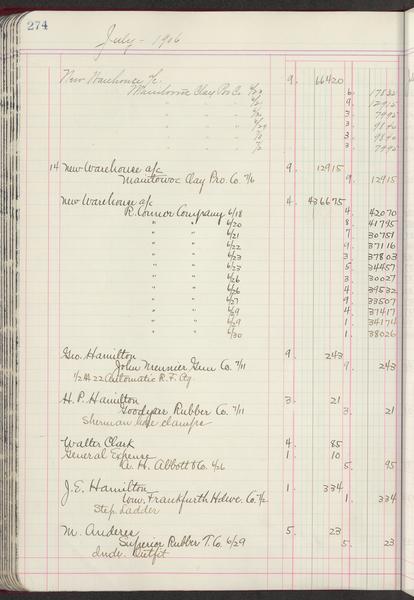 274
July - 1906
New Warehouse %c. 9. 66420
Manitowoc Clay Pro Co. 6. 17832
" " " 9. 12915
" " " 3. 7995
" " " 3. 9840
" " " 3. 9840
" " " 3. 7995
14 New Warehouse a/c 9. 12915
Manitowoc Clay Pro. Co. 7/6 9. 12915
New Warehouse a/c 4. 436675
R. Connor Company 6/18 4. 42070
" " 6/20 8. 41795
" " 6/21 7. 30751
" " 6/22 9. 37116
" " 6/23 3. 37803
" " 6/23 5. 34457
" " 6/26 3. 30027
" " 6/26 4. 39532
" " 6/27 9. 33507
" " 6/29 4. 37417
" " 6/29 1. 34174
" " 6/30 1. 38026
Geo. Hamilton 9. 243
John Meunier Gun Co. 7/11 9. 243
22 Automatic R.F.
H. P. Hamilton 3. 21
Goodyear Rubber Co. 7/11 3. 21
Sherman hose clamps
Walter Clark 4. 85
General Expense 1. 10
A. H. Abbott & Co. 4/26 5. 95
J. E. Hamilton 1. 334
Wm. Frankfurth Hdwe. Co. 1. 334
Step Ladder
M. Anderes 5. 23
Superior Rubber T. Co. 6/29 5. 23
Indv. Outfit